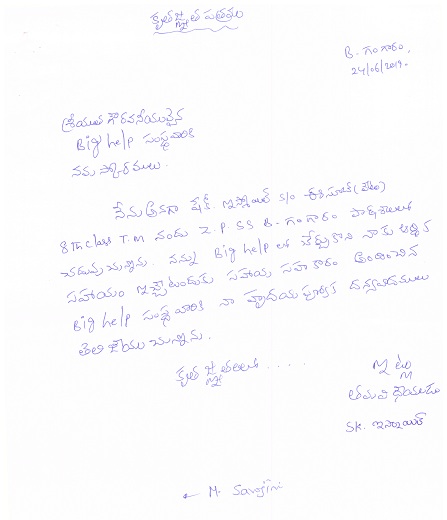 కృతజ్ఞత పత్రము
B. గంగారం.
24/06/2019.
శ్రీయుత గౌరవనీయులైన
Big help సంస్థ వారికి
నమస్కారములు.
నేను అనగా షేక్. ఇస్మాయిల్ S/O ఈసూబ్ (లేటు)
8th class T.M నందు Z.P.SS B. గంగారం పాఠశాలలో
చదువుచున్నాను. నన్ను Big help లో చేర్చుకొని నాకు ఆర్థిక
సహాయం ఇచ్చేటందుకు సహాయ సహకారం అందించిన
Big help సంస్థ వారికి నా హృదయ పూర్వక దన్యవాదములు
తెలియజేయుచున్నాను.
కృతజ్ఞతలతో . . . .
ఇట్లు
తమ విధేయుడు
SK. ఇస్మాయిల్
M. Sarojini